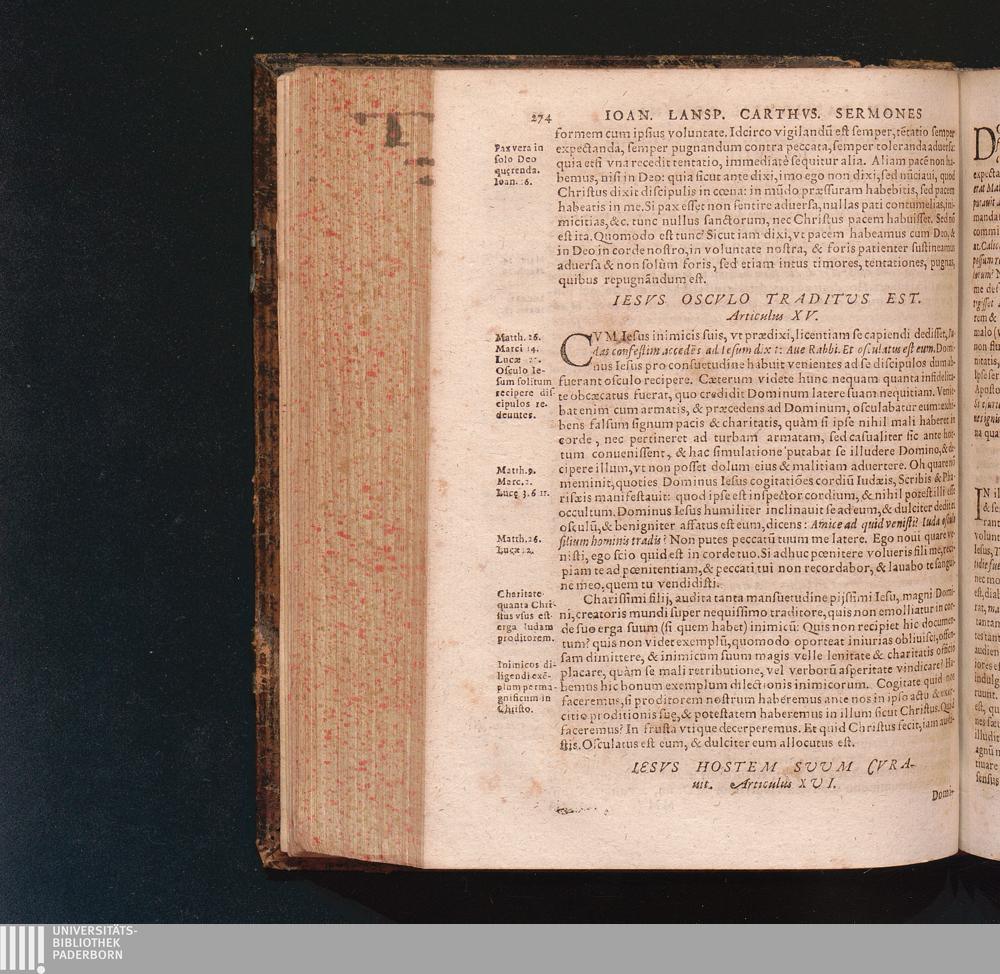 274 IOAN. LANSP. CARTHVS. SERMONES
formem cum ipsius voluntate. Idcirco vigilandū est semper, tētatio semper
expectanda, semper pugnandum contra peccata, semper toleranda aduersa:
quia etsi vna recedit tentatio, immediatè sequitur alia. Aliam pacē non ha-
bemus, nisi in Deo: quia sicut ante dixi, imo ego non dixi, sed nūciaui, quod
Christus dixit discipulis in cœna: in mūdo præssuram habebitis, sed pacem
habeatis in me. Si pax esset non sentire aduersa, nullas pati contumelias, ini-
micitias, &c. tunc nullus sanctorum, nec Christus pacem habuisset. Sed nō
est ita. Quomodo est tunc? Sicut iam dixi, vt pacem habeamus cum Deo, &
in Deo in corde nostro, in voluntate nostra, & foris patienter sustineamus
aduersa & non solùm foris, sed etiam intus timores, tentationes, pugnas,
quibus repugnandum est.
Pax vera in
solo Deo
quęrenda.
Ioan. 16.
IESVS OSCVLO TRADITVS EST.
Articulus XV.
CVM Iesus inimicis suis, vt prædixi, licentiam se capiendi dedisset, Iu-
das confestim accedēs ad Iesum dixit: Aue Rabbi. Et osculatus est eum. Domi-
nus Iesus pro consuetudine habuit venientes ad se discipulos dum ab-
fuerant osculo recipere. Cæterum videte hunc nequam quanta infidelita-
te obcæcatus fuerat, quo credidit Dominum latere suam nequitiam. Venie-
bat enim cum armatis, & præcedens ad Dominum, osculabatur eum: exhi-
bens falsum signum pacis & charitatis, quàm si ipse nihil mali haberet in
corde, nec pertineret ad turbam armatam, sed casualiter sic ante hor-
tum conuenissent, & hac simulatione putabat se illudere Domino, & de-
cipere illum, vt non posset dolum eius & malitiam aduertere. Oh quare nō
meminit, quoties Dominus Iesus cogitatiões cordiū Iudæis, Scribis & Pha-
risæis manifestauit: quod ipse est inspector cordium, & nihil potest illi esse
occultum. Dominus Iesus humiliter inclinauit se ad eum, & dulciter dedit ei
osculū, & benigniter affatus est eum, dicens: Amice ad quid venisti? Iuda osculo
filium hominis tradis? Non putes peccatū tuum me latere. Ego noui quare ve-
nisti, ego scio quid est in corde tuo. Si adhuc pœnitere volueris fili me, reci-
piam te ad pœnitentiam, & peccati tui non recordabor, & lauabo te sangui-
ne meo, quem tu vendidisti.
Matth. 26.
Marci 14.
Lucæ 22.
Osculo Ie-
sum solitum
recipere dis-
cipulos re-
deuntes.
Matth. 9.
Marc. 2.
Lucę 3. 6 11.
Matth. 26.
Lucæ 22.
Charissimi filij, audita tanta mansuetudine pijssimi Iesu, magni Domi-
ni, creatoris mundi super nequissimo traditore, quis non emolliatur in cor-
de suo erga suum (si quem habet) inimicū? Quis non recipiet hic documen-
tum? quis non videt exemplū, quomodo oporteat iniurias obliuisci, offen-
sam dimittere, & inimicum suum magis velle lenitate & charitatis officio
placare, quàm se mali retributione, vel verborū asperitate vindicare? Ha-
bemus hic bonum exemplum dilectionis inimicorum. Cogitate quid nos
faceremus, si proditorem nostrum haberemus ante nos in ipso actu & exer-
citio proditionis suę, & potestatem haberemus in illum sicut Christus. Quid
faceremus? In frusta vtique decerperemus. Et quid Christus fecit, iam audi-
stis. Osculatus est eum, & dulciter eum allocutus est.
Charitate
quanta Chri-
stus vsus est
erga Iudam
proditorem.
Inimicos di-
ligendi exē-
plum perma-
gnificum in
Christo.
IESVS HOSTEM SUUM CVRA-
uit. Articulus XVI.
Domi-
UNIVERSITÄTS-
BIBLIOTHEK
PADERBORN